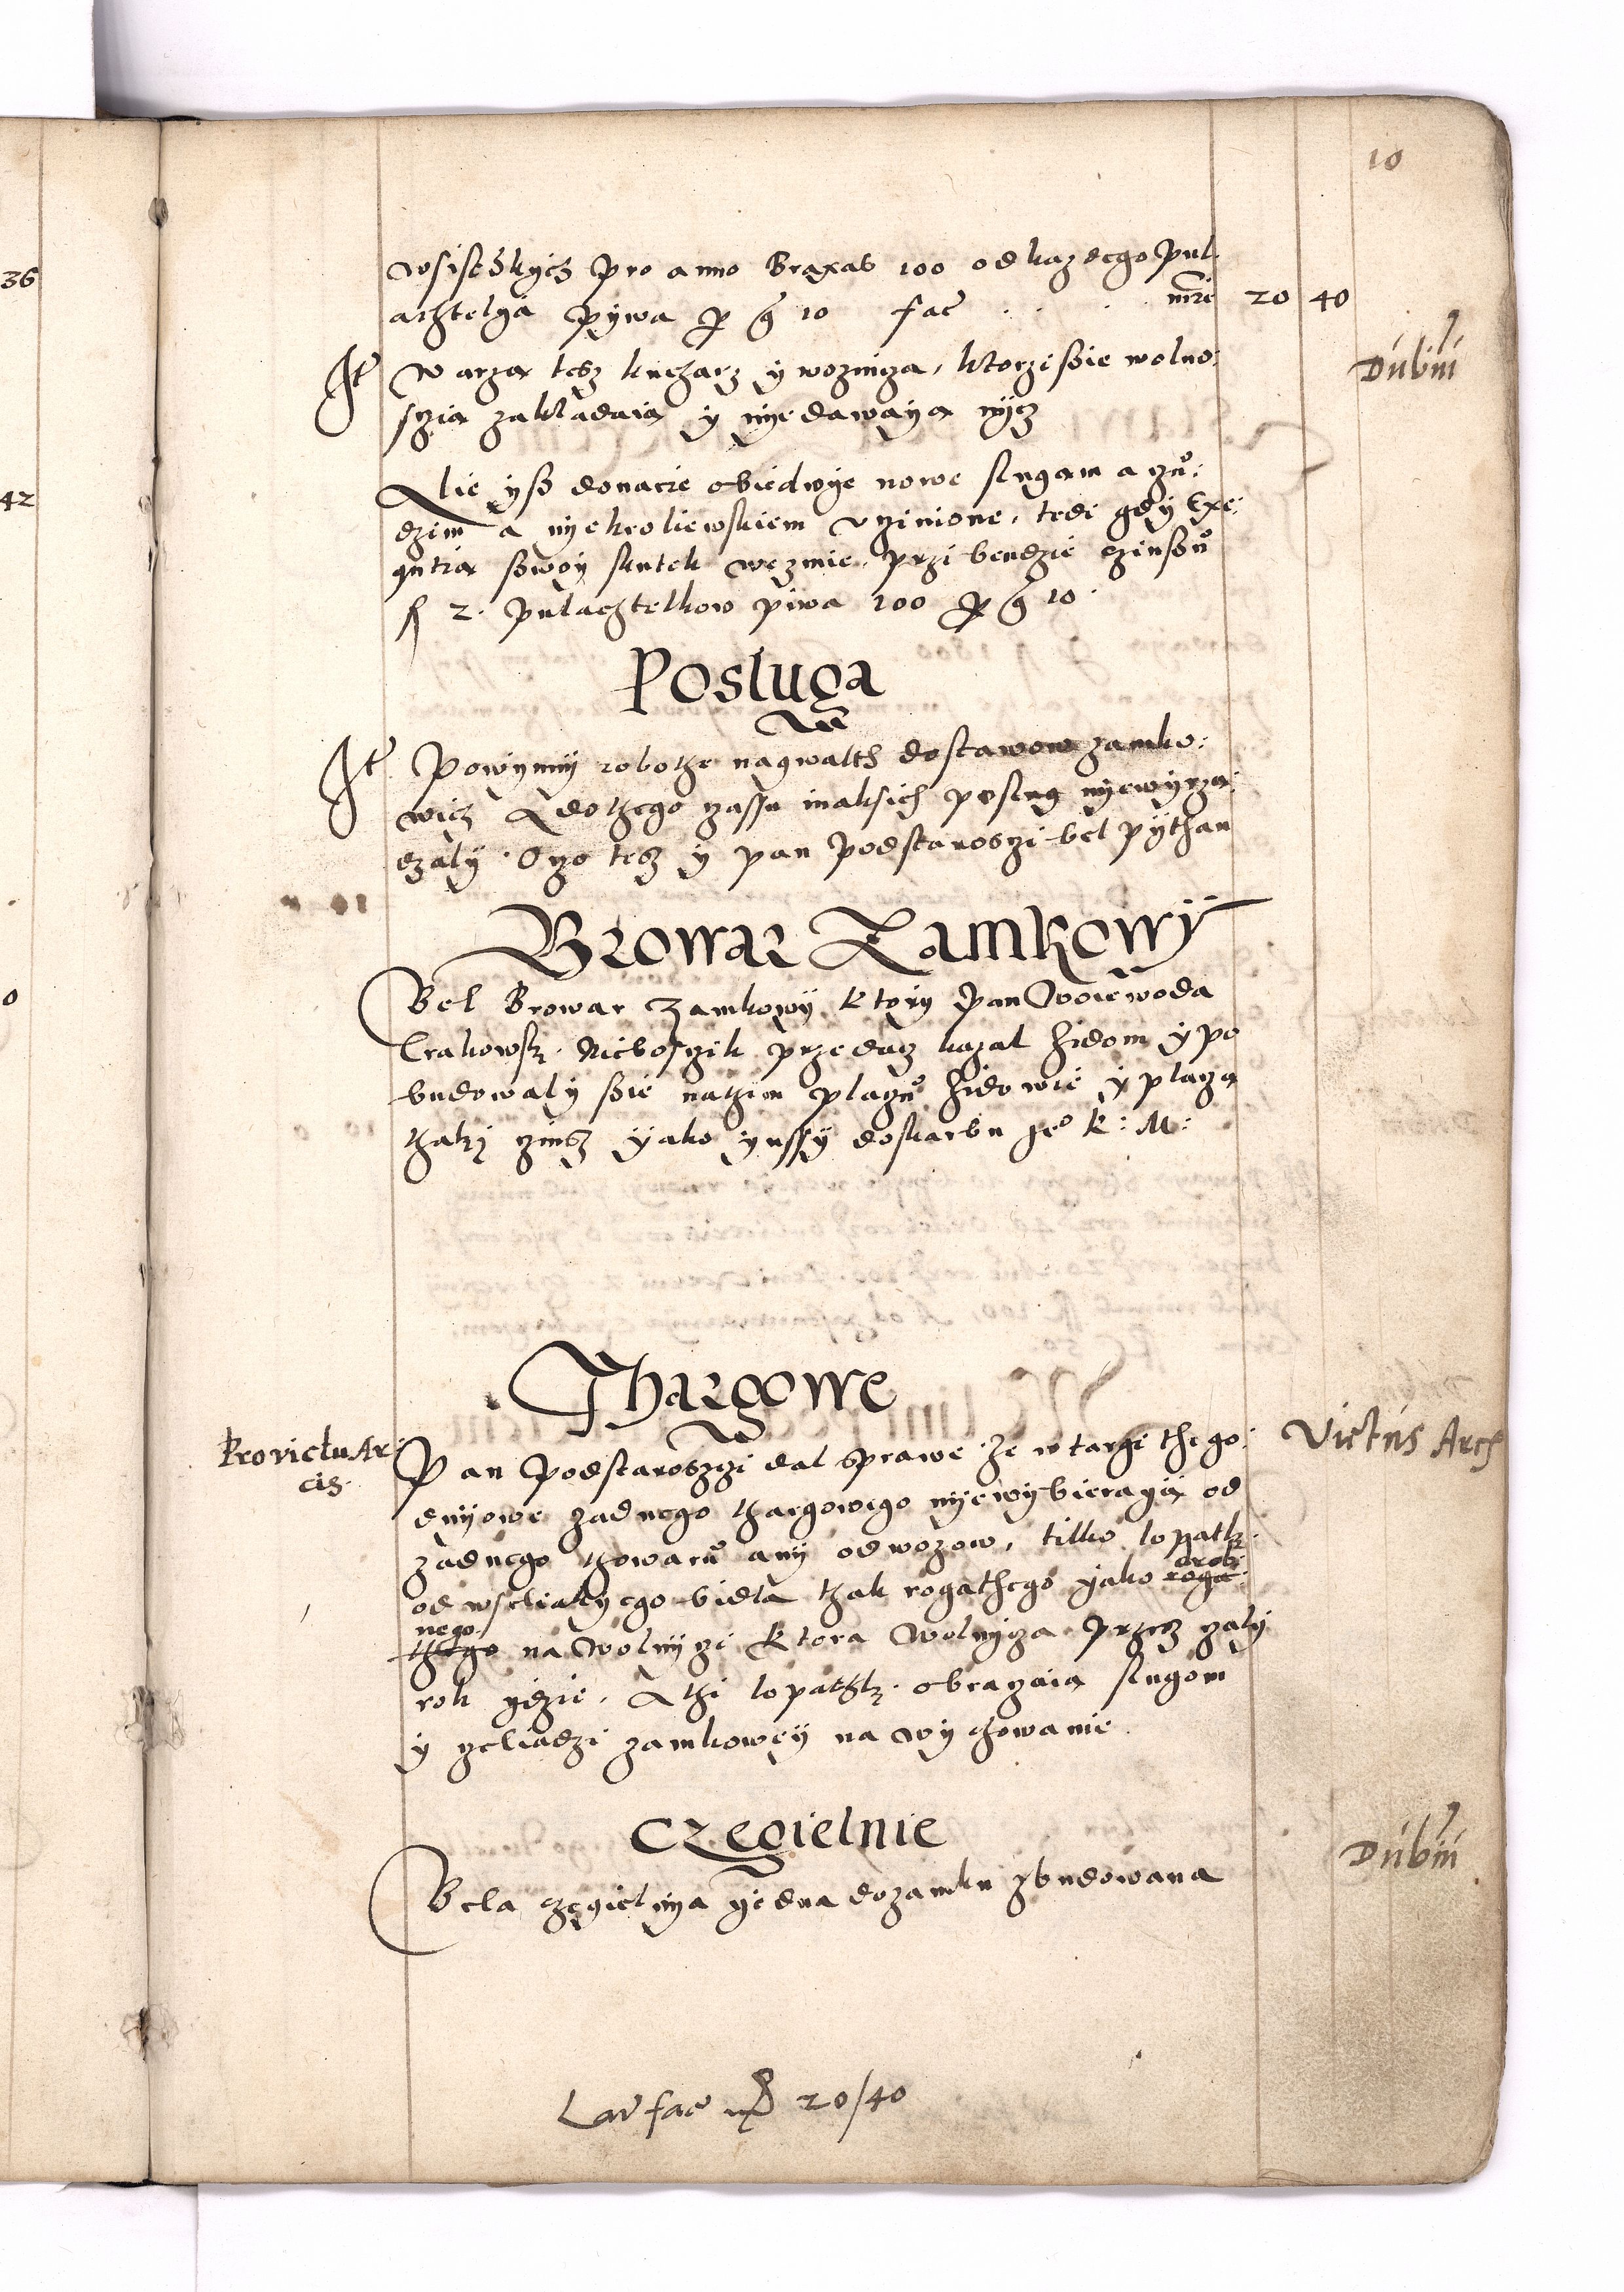 10
36
42
0
wsistkych pro anno Braxat 100 od kazdego pul
achtelya pywa per g 10 fac . . . mrc 20 40
It warza tesz kucharz y wozniza, ktorzi sie wolno:
Dubiu
sczia zakladaia y nye dawaya nycz
Alie ysz donacie obiedwye nowe slugam a czu:
dzim a nye kroliewskiem uczinione, tedi gdy Exe:
qutia swoy skutek wezmie, przibendzie czinszu
fl 2. pulachtelkow piwa 100 per g 10.
Posluga
It Powynny robothe nagwalth do stawow zamko:
wich A do thego czassu inaksich poslug nye wyrza:
dzaly. O czo tesz y pan Podstaroszci bel pythan
Browar Zamkowy
Bel Browar Zamkowy ktory Pan Woiewoda
Crakowsk. Nieboszczik przedacz kazal Zidom y po
budowaly sie na thim placzu Zidowie y placza
thaki czinsz yako ynssy do skarbu Je° K: M:
Thargowe
Pro victu Ar
cis.
Pan Podstaroszczi dal sprawe ze w targi thego:
Victus Arch
dnyowe zadnego thargowego nye wybieraya od
zadnego thowaru any od wozow, tilko lopatk.
od wseliakyego bidla thak rogathego yako roga:
drob:
nego
thego na Wolnyczi ktora Wolnycza przesz czaly
rok ydzie. A thi lopathk. obraczaia slugom
y czeliadzi zamkowey na wychowanie.
Czegielnie
Dubiu
Bela czegielnya yedna do zamku zbudowana
Lat fac mr 20/40